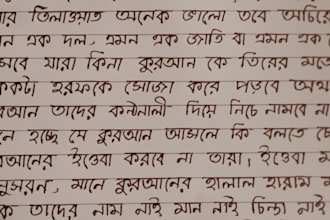 র তিলাওয়াত অনেক ভালো তবে অচিরে
ন এক দল, এমন এক জাতি বা এমন এক
সবে যারা কিনা কুরআন কে তিরের মতো
কটা হরফকে সোজা করে পড়বে অথ
রআন তাদের কন্ঠনালী দিয়ে নিচে নামবে না
ন হচ্ছে যে কুরআন আসলে কি বলতে চে
আনের ইত্তেবা করবে না তারা, ইত্তেবা ম
নুসরন, মানে কুরআনের হালাল হারাম
ক তাদের নাম নাই মান নাই চিন্তা নাই